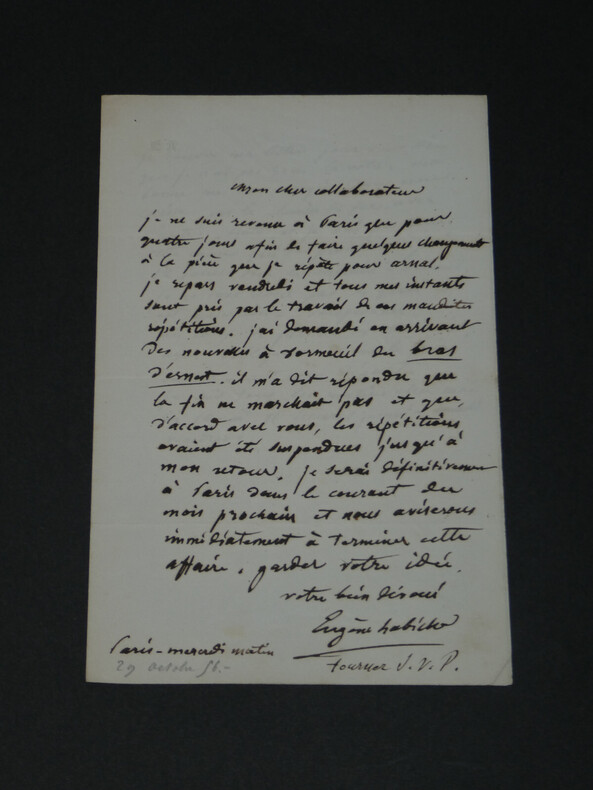 mon cher collaborateur
je ne suis revenu à Paris que pour
quatre jours afin de faire quelques changements
à la pièce que je répète pour arnal.
je repars vendredi et tous mes instants
sont pris par le travail de ces maudites
répétitions. j'ai demandé en arrivant
des nouvelles à dormeuil du bras
d'ernest. il m'a dit répondu que
la fin ne marchait pas et que,
d'accord avec vous, les répétitions
avaient été suspendues jusqu'à
mon retour. je serai définitivement
à Paris dans le courant du
mois prochain et nous aviserons
immédiatement à terminer cette
affaire. garder votre idée.
votre bien dévoué
Eugène Labiche
Paris - mercredi matin
29 octobre 56.-
tournez S.V.P.